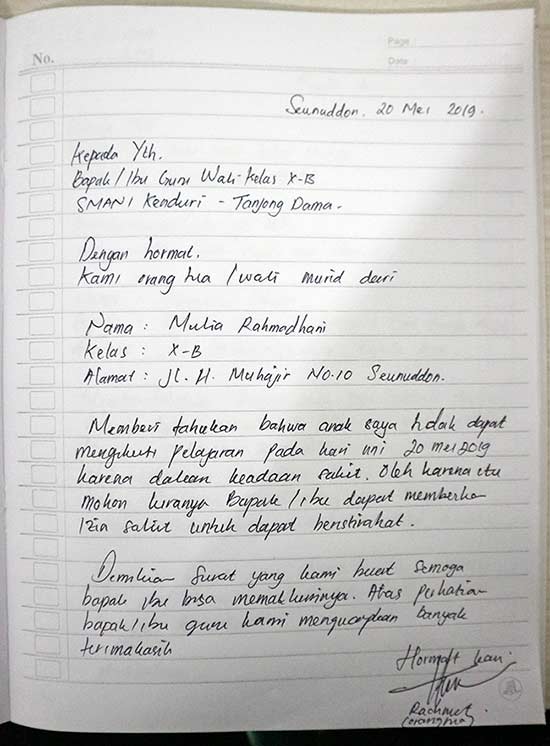 Page :
No.
Date :
Seunuddon, 20 Mei 2019.
Kepada Yth.
Bapak/Ibu Guru Wali Kelas X-B
SMAN 1 Kenduri - Tanjong Dama.
Dengan hormat,
Kami orang tua / wali murid dari
Nama : Mulia Rahmadhani
Kelas : X-B
Alamat : Jl. H. Muhajir No.10 Seunuddon.
Memberi tahukan bahwa anak saya tidak dapat
mengikuti pelajaran pada hari ini 20 mei 2019
karena dalam keadaan sakit. Oleh karena itu
mohon kiranya Bapak/ibu dapat memberikan
izin sakit untuk dapat beristirahat.
Demikian surat yang kami buat semoga
bapak ibu bisa memakluminya. Atas perhatian
bapak/ibu guru kami mengucapkan banyak
terimakasih
Hormat kami
Rachmat
(orangtua)